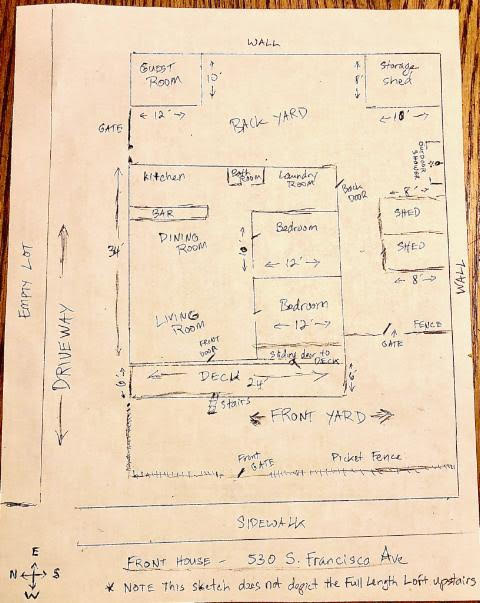 WALL
GUEST
ROOM
10'
8'
Storage
shed
12'
10'
BACK YARD
GATE
OUTDOOR
SHOWER
Kitchen
Bath
ROOM
Laundry
ROOM
BACK
DOOR
8'
BAR
SHED
34'
DINING
ROOM
10'
Bedroom
SHED
12'
8'
EMPTY LOT
DRIVEWAY
WALL
Bedroom
12'
LIVING
ROOM
FRONT
DOOR
FENCE
GATE
Sliding door to
DECK
6'
DECK
24'
6'
Stairs
FRONT YARD
Front
GATE
Picket Fence
SIDEWALK
E
N S
W
FRONT HOUSE - 530 S. Francisco Ave
* NOTE This sketch does not depict the Full Length Loft upstairs